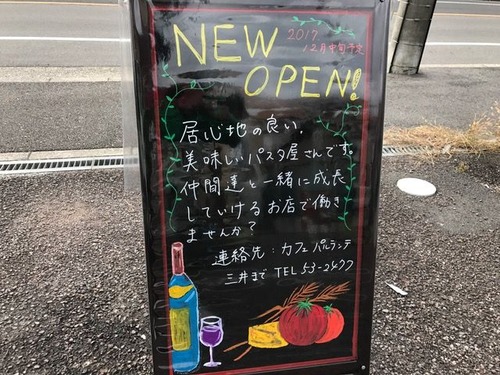 NEW
2017
12月中旬予定
OPEN!
居心地の良い、
美味しいパスタ屋さんです。
仲間達と一緒に成長
していけるお店で働き
ませんか?
連絡先:カフェ パルランテ
三井まで TEL 53-2477